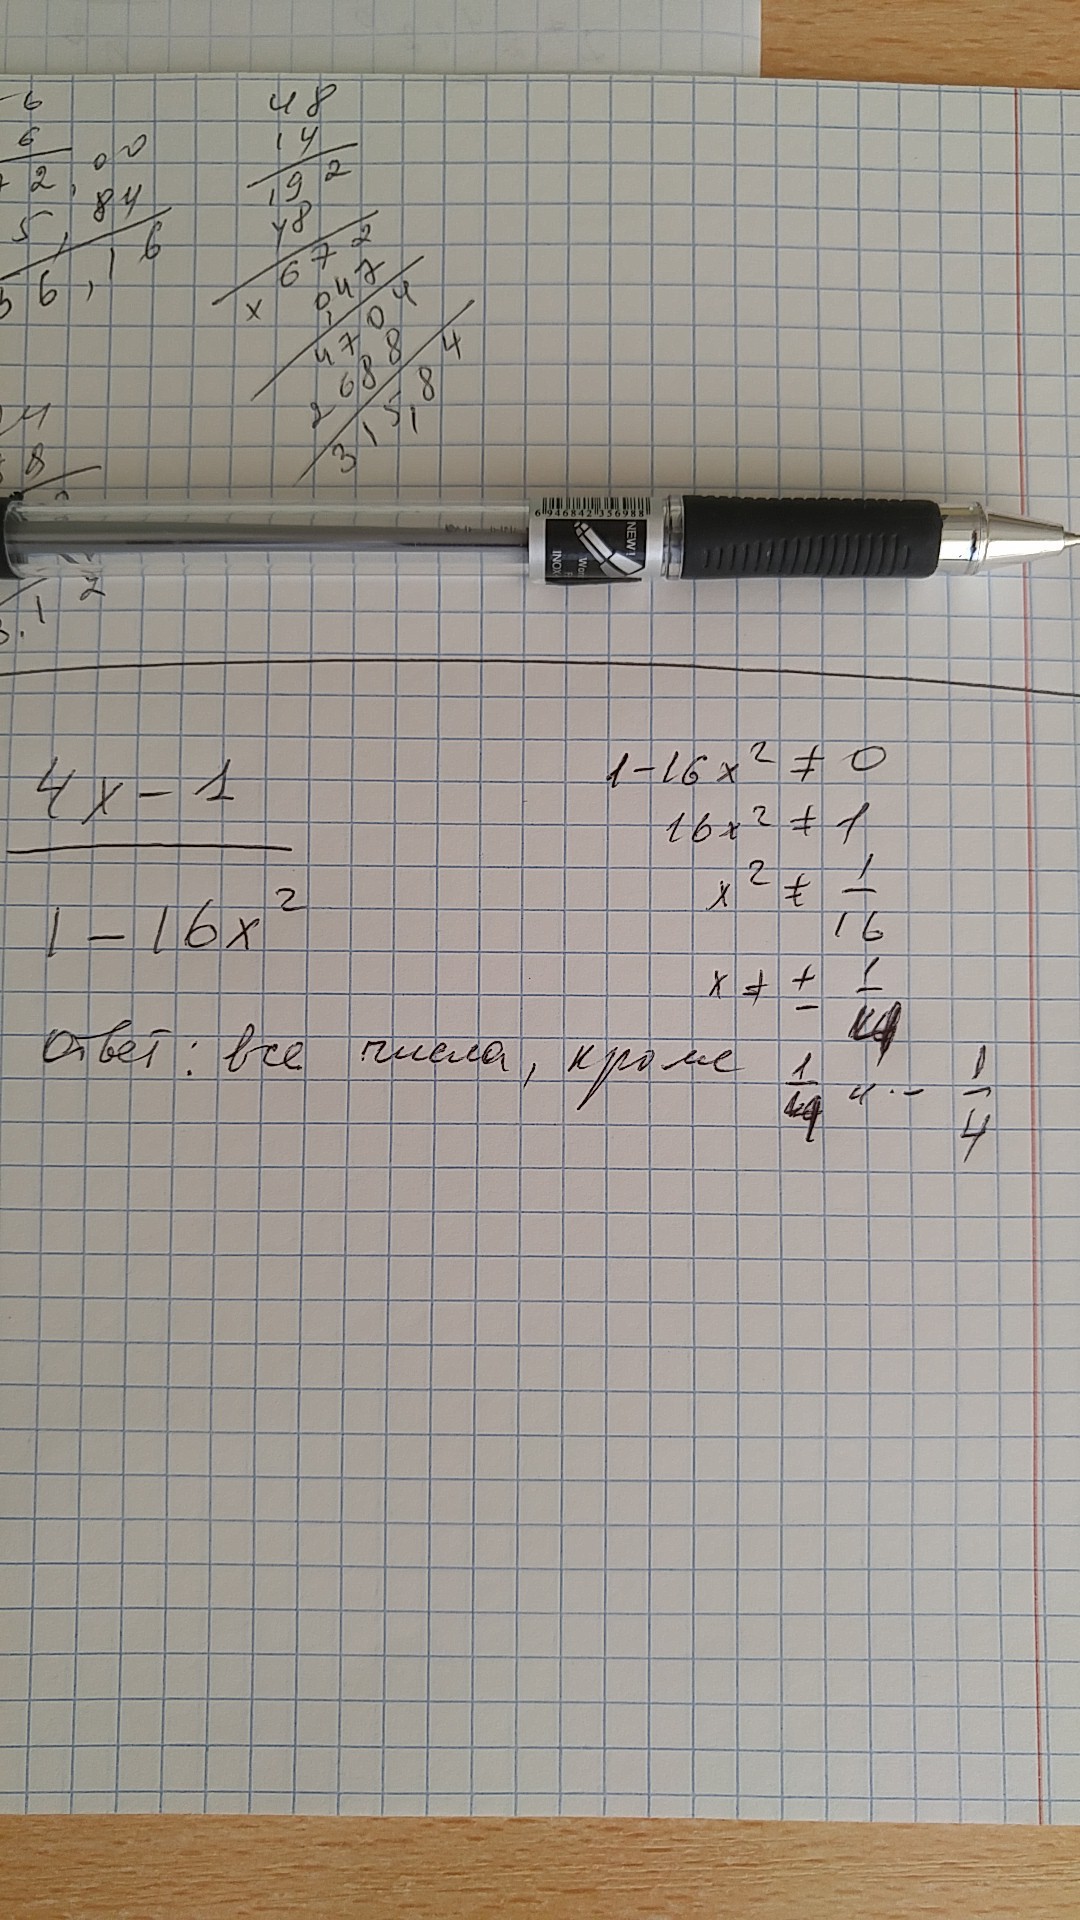 6
6
2,00
5,84
36,16
48
14
192
48
672
x 0,47
4704
2688
315,84
4
8
2
3.1
6946842356988
NEW!
INOX
4x - 1
1 - 16x²
1-16x² ≠ 0
16x² ≠ 1
x² ≠ 1
16
x ≠ ± 1
4
Ответ: все числа, кроме 1/4 и - 1/4